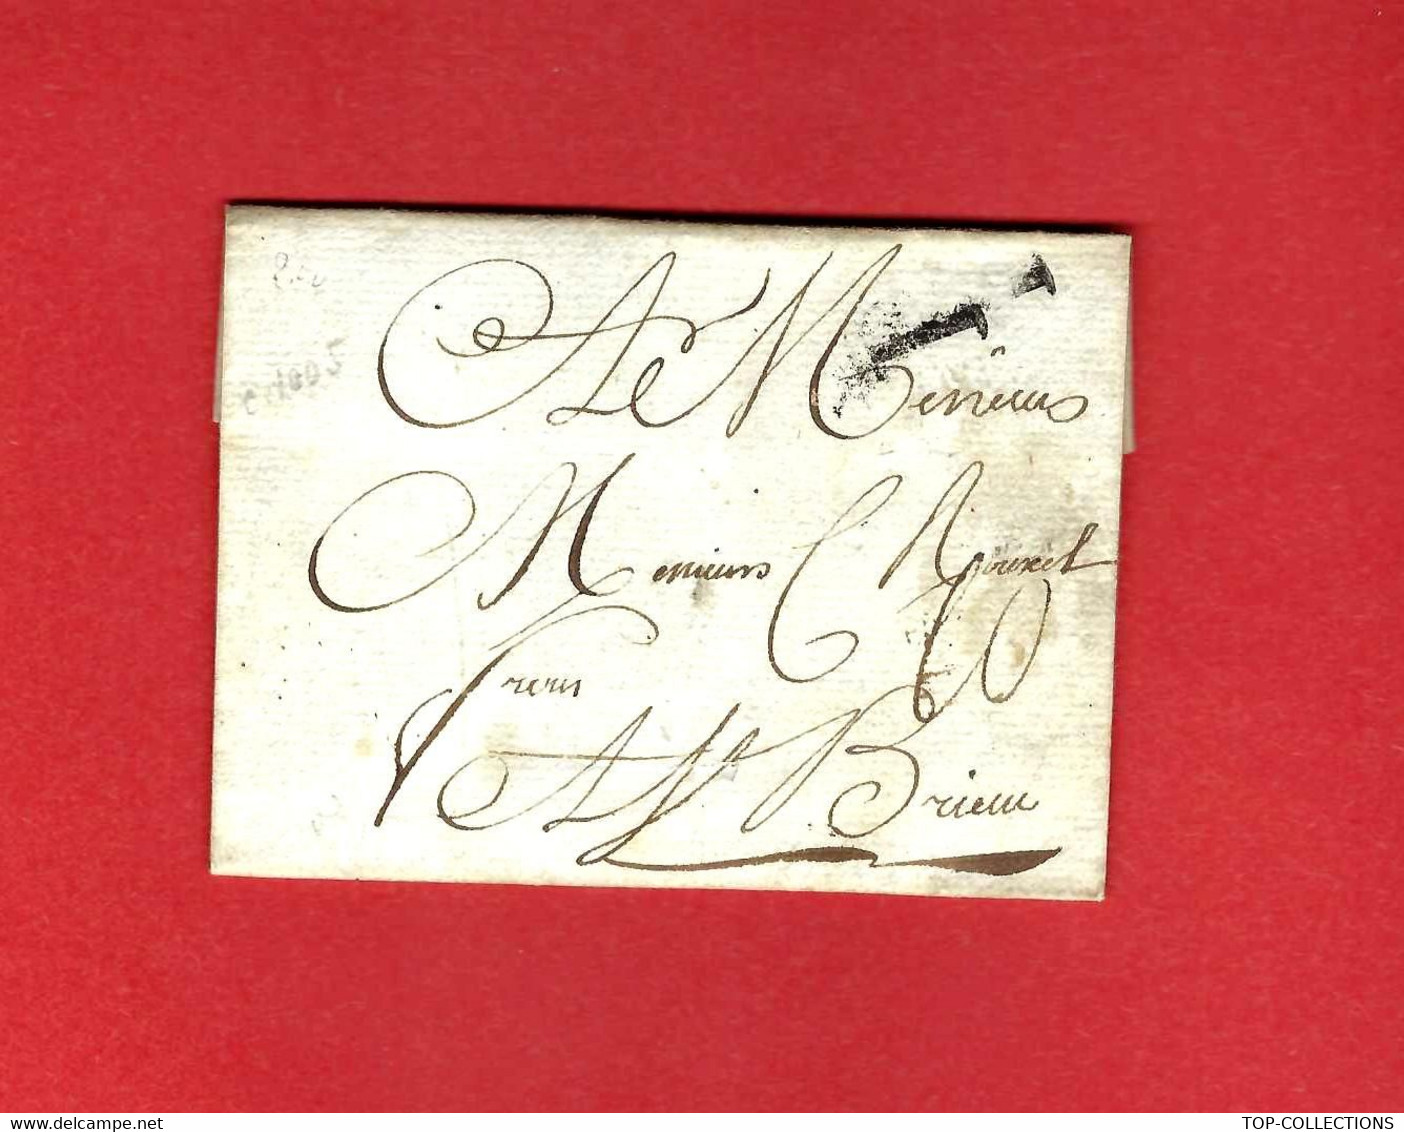 A Messieurs
Messieurs Rouxel
freres
A St Brieuc
delcampe.net
TOP-COLLECTIONS